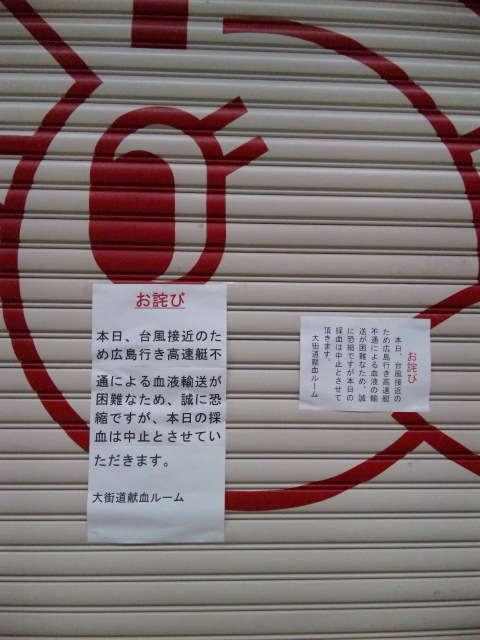 お詫び
本日、台風接近のた
め広島行き高速艇不
通による血液輸送が
困難なため、誠に恐
縮ですが、本日の採
血は中止とさせてい
ただきます。
大街道献血ルーム
お詫び
本日、台風接近の
ため広島行き高速艇
不通による血液の輸
送が困難なため、誠
に恐縮ですが本日の
採血は中止とさせて
頂きます。
大街道献血ルーム